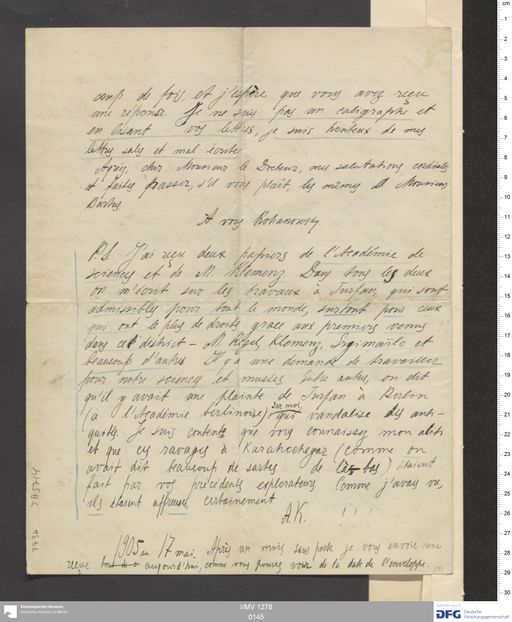 coup de fois, et j'espère que vous avez reçu
une reponse. Je ne suis pas un caligraphe et
en lisant vos lettres, je suis honteux de mes
lettres sales et mal écrites
Agréz, cher Monsieur le Docteur, mes salutations cordiales
et faites passer, s'il vous plaît les mêmes à Monsieur
Bartus
A vous Kohanowsky
P.S. J'ai reçu deux papiers de l'Académie de
sciences et de M. Klemenz Dans tous les deux
on m'écrit sur les travaux à Turfan, qui sont
admissibles pour tout le monde, surtout pour ceux
qui ont le plus de droits, grace aux premiers venus
dans cet district – M. Regel, Klemenz, Irgimailo et
beaucoup d'autres. Il y a une demande de travailler
pour notre sciences et musées entre autres, on dit
qu'il y avait une plainte de Turfan à Berlin
(à l'Académie berlinoise) sur moi, qui vandalise les anti-
quités. Je suis content que vous connaissez mon
et que ces ravages à Karachoehozar (comme on
avait dit beaucoup de sartes de là bas) étaient
fait par vos précedents explorateurs. Comme j'avais vu,
ils étaient affreuses, certainement
A.K. !!!
1905 an 17 mai. Après un mois sans poste je vous envoie une
reçue aujourd'hui, comme vous pouvez voir de la date de l'enveloppe.
TA 5774
7736
Ethnologisches Museum
Staatliche Museen zu Berlin
I/MV 1278
0145
DFG
Deutsche
Forschungsgemeinschaft